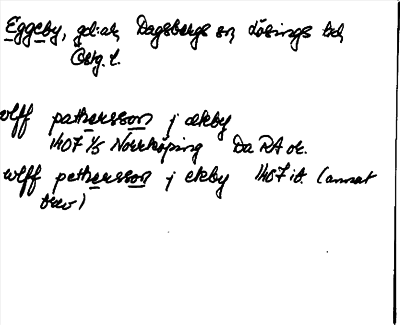 Eggeby, gd:ar, Dagsbergs sn, Lösings hd,
Östg. l.
wlff pathersson j ekeby
1407 1/5 Norrköping Da RA or.
wlff pethersson j ekeby 1407 ib. (annat
brev)